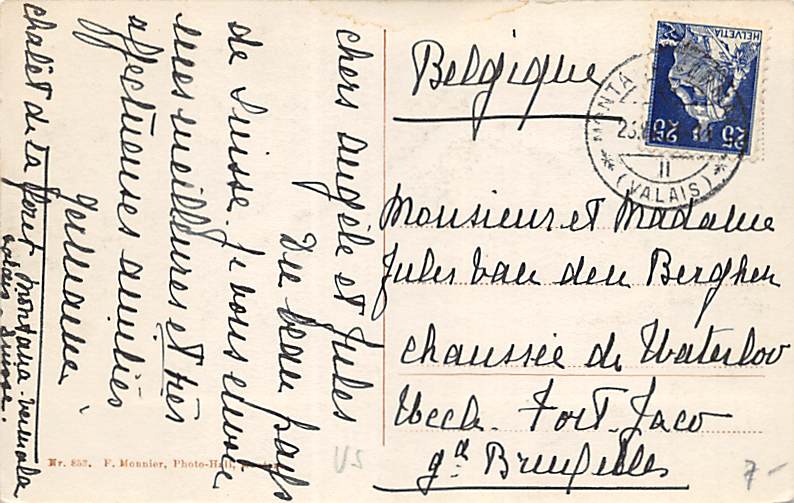 chers Angèle et Jules
Du beau pays
de Suisse. Je vous envoie
mes meilleures et très
affectueuses amitiés
Germaine
chalêt de la Foret Montana-Vermala
Valais-Suisse.
Nr. 853. F. Monnier, Photo-Hall,
Belgique
HELVETIA
25 25
MONTANA
23.
II
(VALAIS)
Monsieur et Madame
Jules Van den Berghen
chaussée de Waterloo
Uccle. Fort. Jaco
gd Bruxelles
VS
7-